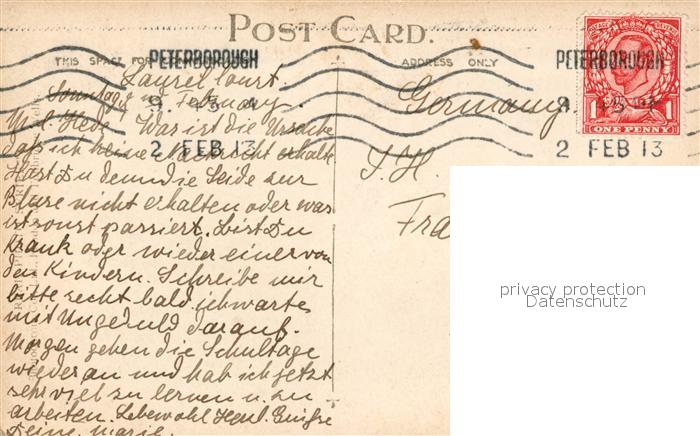 POST CARD.
THIS SPACE FOR
ADDRESS ONLY
PETERBOROUGH
2 FEB 13
PETERBOROUGH
2 FEB 13
POSTAGE
ONE PENNY
Laurel Court.
Sonntag, Februar
M. l. Hede, Was ist die Ursache
daß ich keine Nachricht erhalte
Hast Du denn die Seide zur
Bluse nicht erhalten oder was
ist sonst passiert. bist Du
Krank oder wieder einer von
den Kindern. Schreibe mir
bitte recht bald. ich warte
mit Ungeduld darauf.
Morgen gehen die Schultage
wieder an und hab ich jetzt
sehr viel zu lernen u. zu
arbeiten. Lebewohl Herzl. Grüße
Deine Marie.
Germany.
S. H.
Fra
privacy protection
Datenschutz